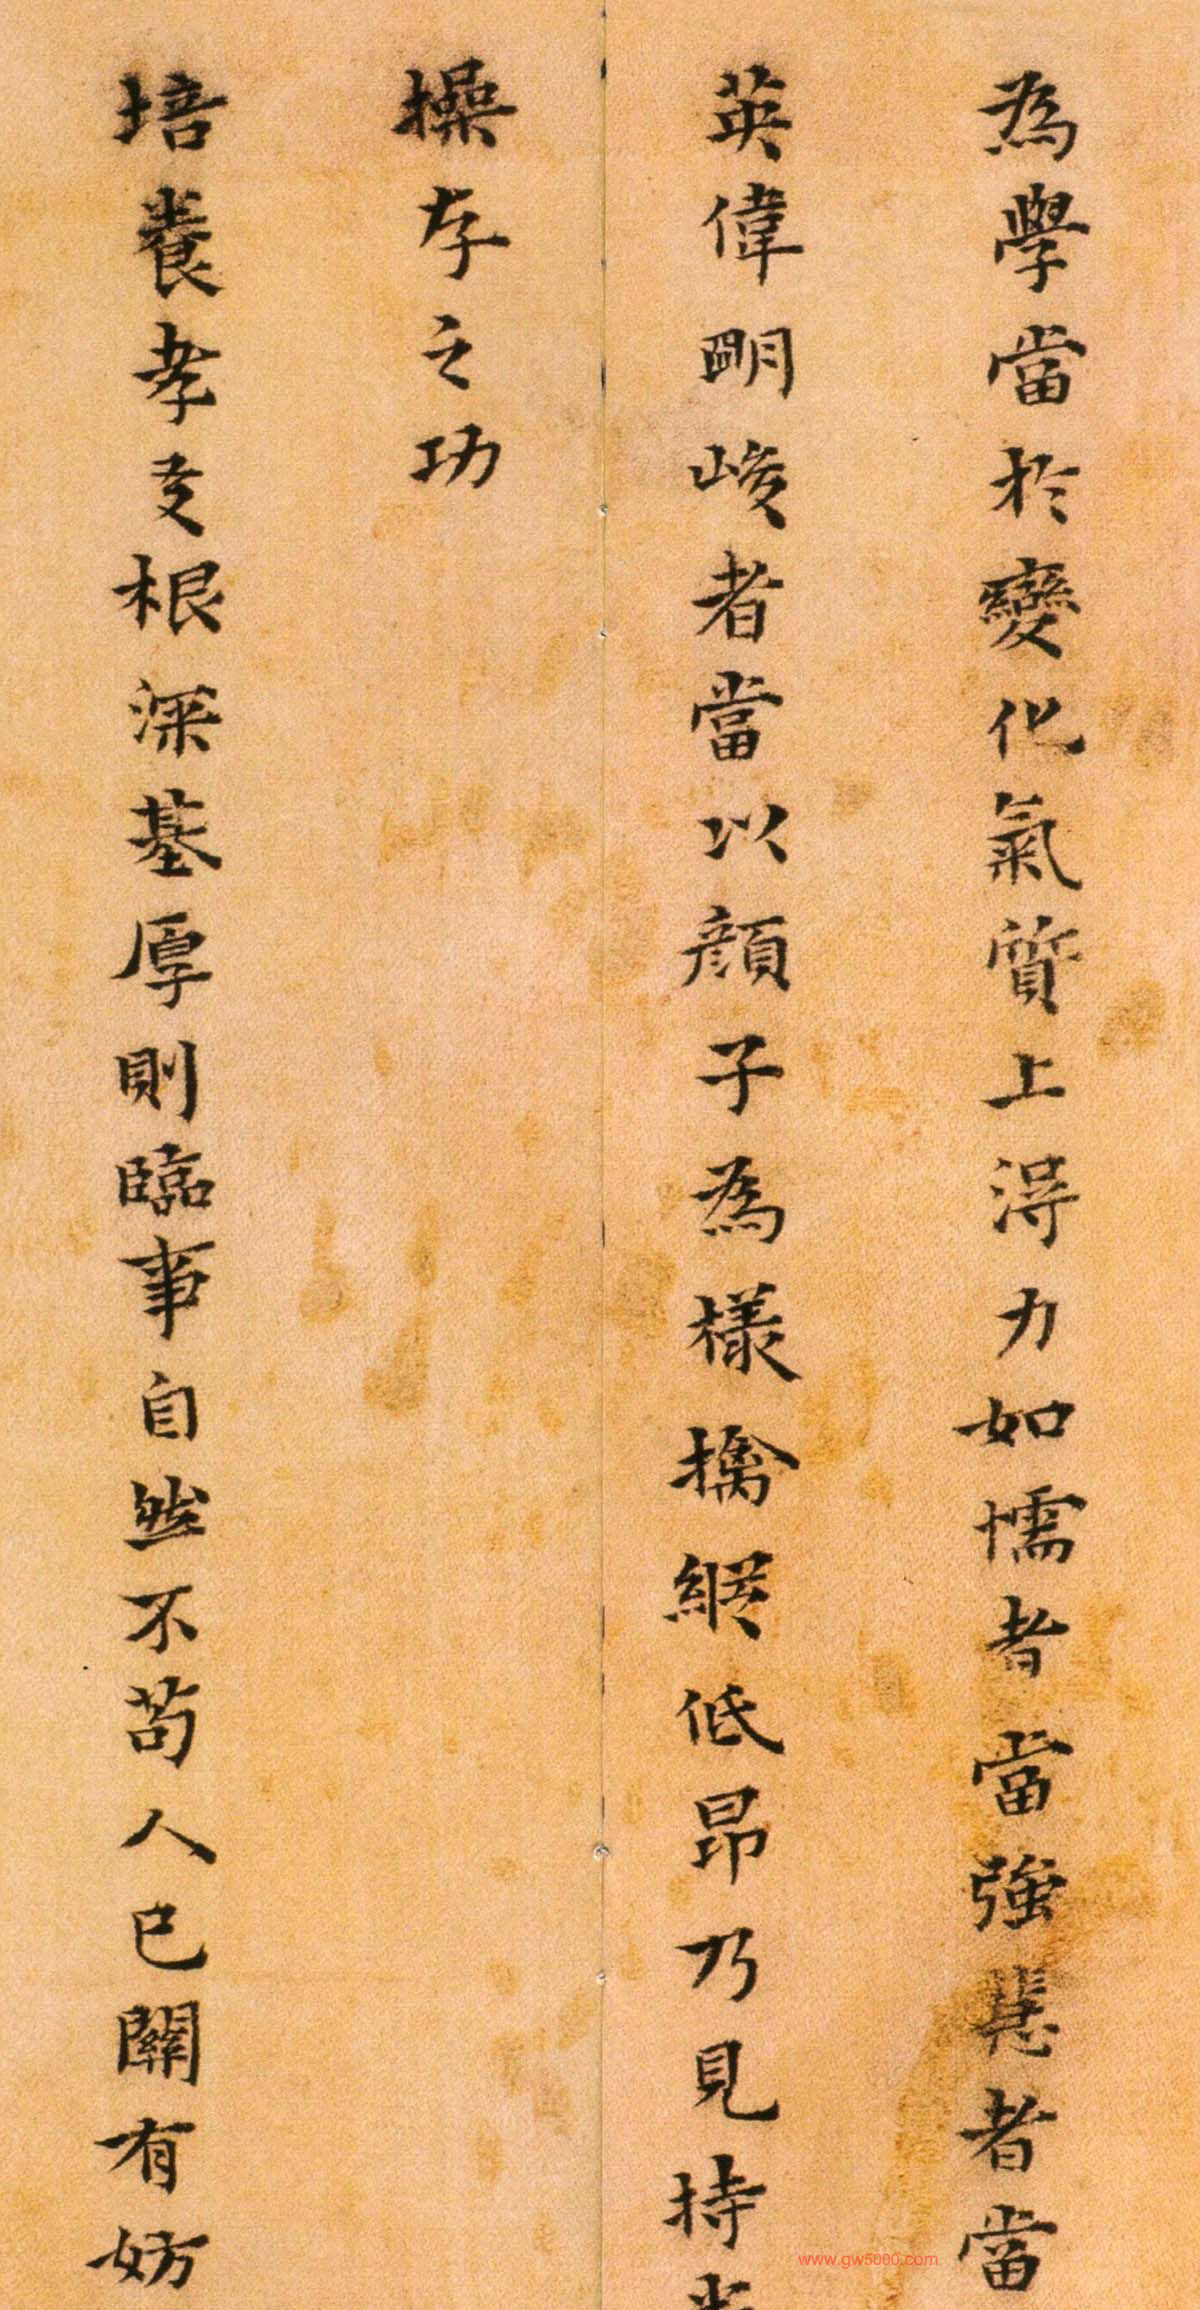 為學當於變化氣質上淂力如懦者當強悲者當
英偉明峻者當以顔子為樣擒縱低昂乃見持
操存之功
培養孝友根深基厚則臨事自然不苟人己關有妨
www.gw5000.com